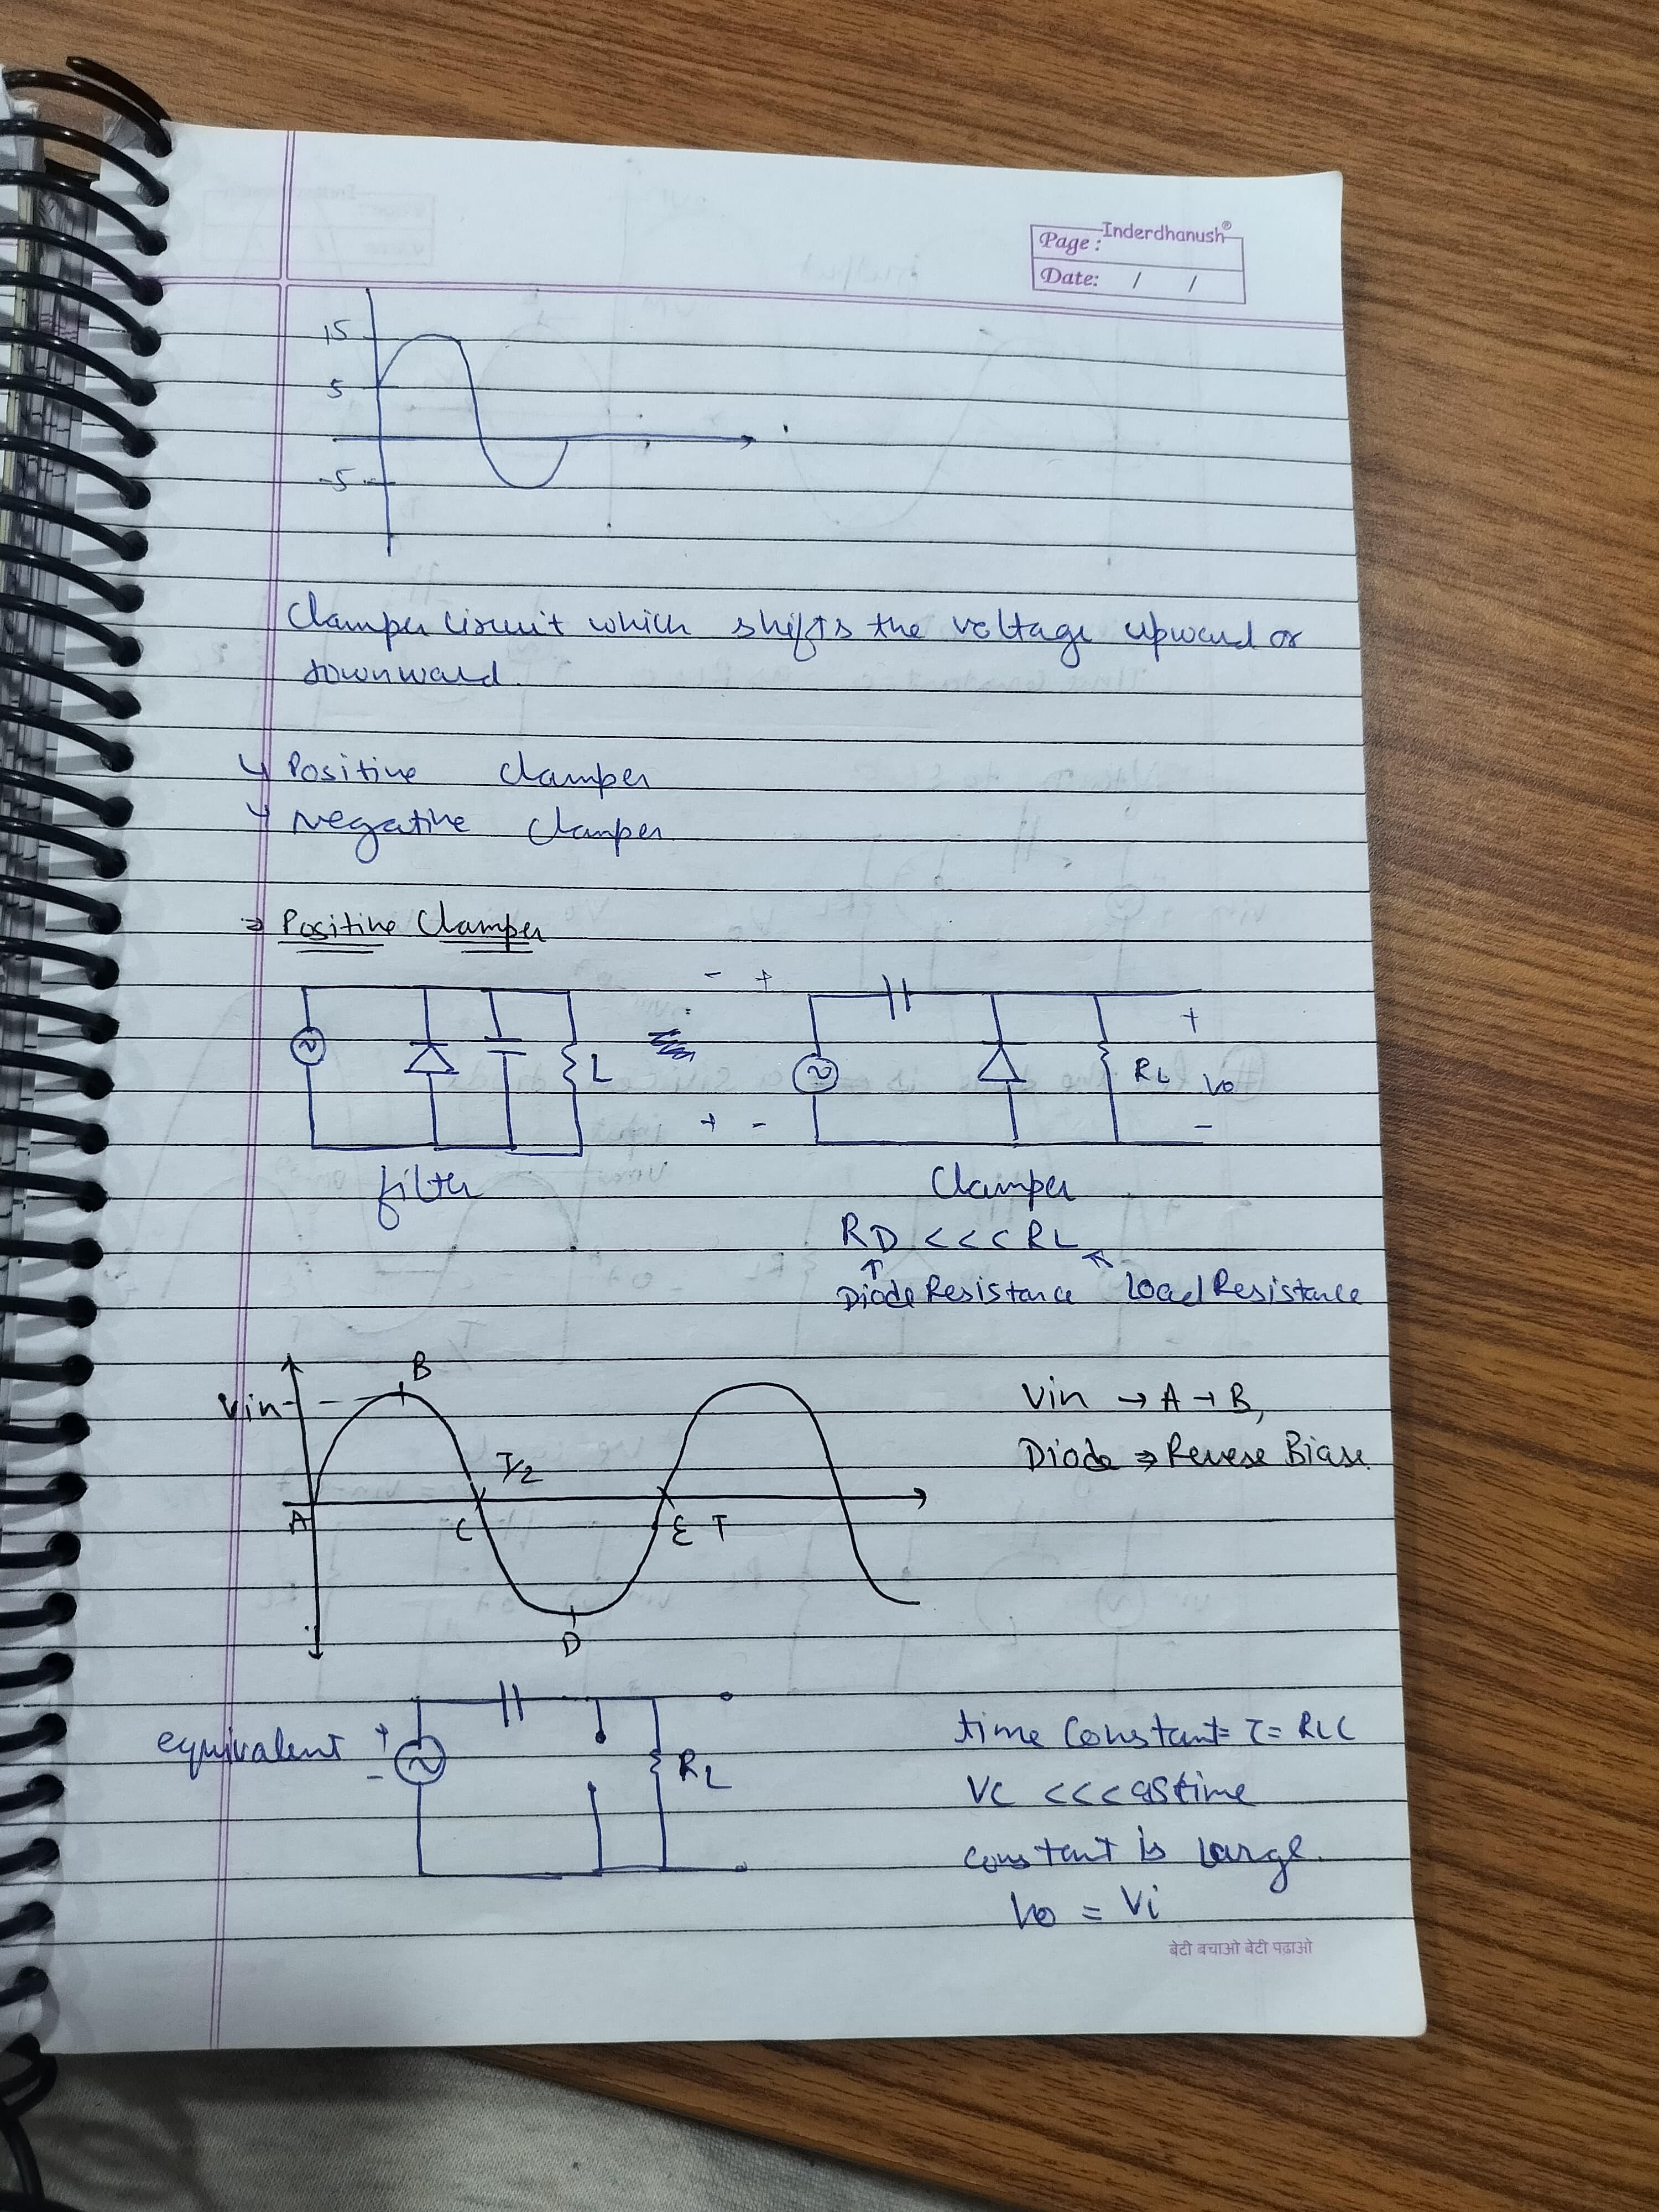 Inderdhanush®
Page :
Date: / /
15
5
-5
Clamper circuit which shifts the voltage upward or
downward.
↳ Positive clamper
↳ Negative clamper
⇒ Positive Clamper
- +
+
L
RL Vo
+ -
-
filter
Clamper
RD <<< RL
↑
Diode Resistance Load Resistance
B
Vin
Vin → A → B,
T/2
Diode ⇒ Reverse Biase.
A
C
E T
D
equivalent
+
-
RL
time Constant = τ = RLC
VC <<< as time
constant is large.
Vo = Vi
बेटी बचाओ बेटी पढ़ाओ